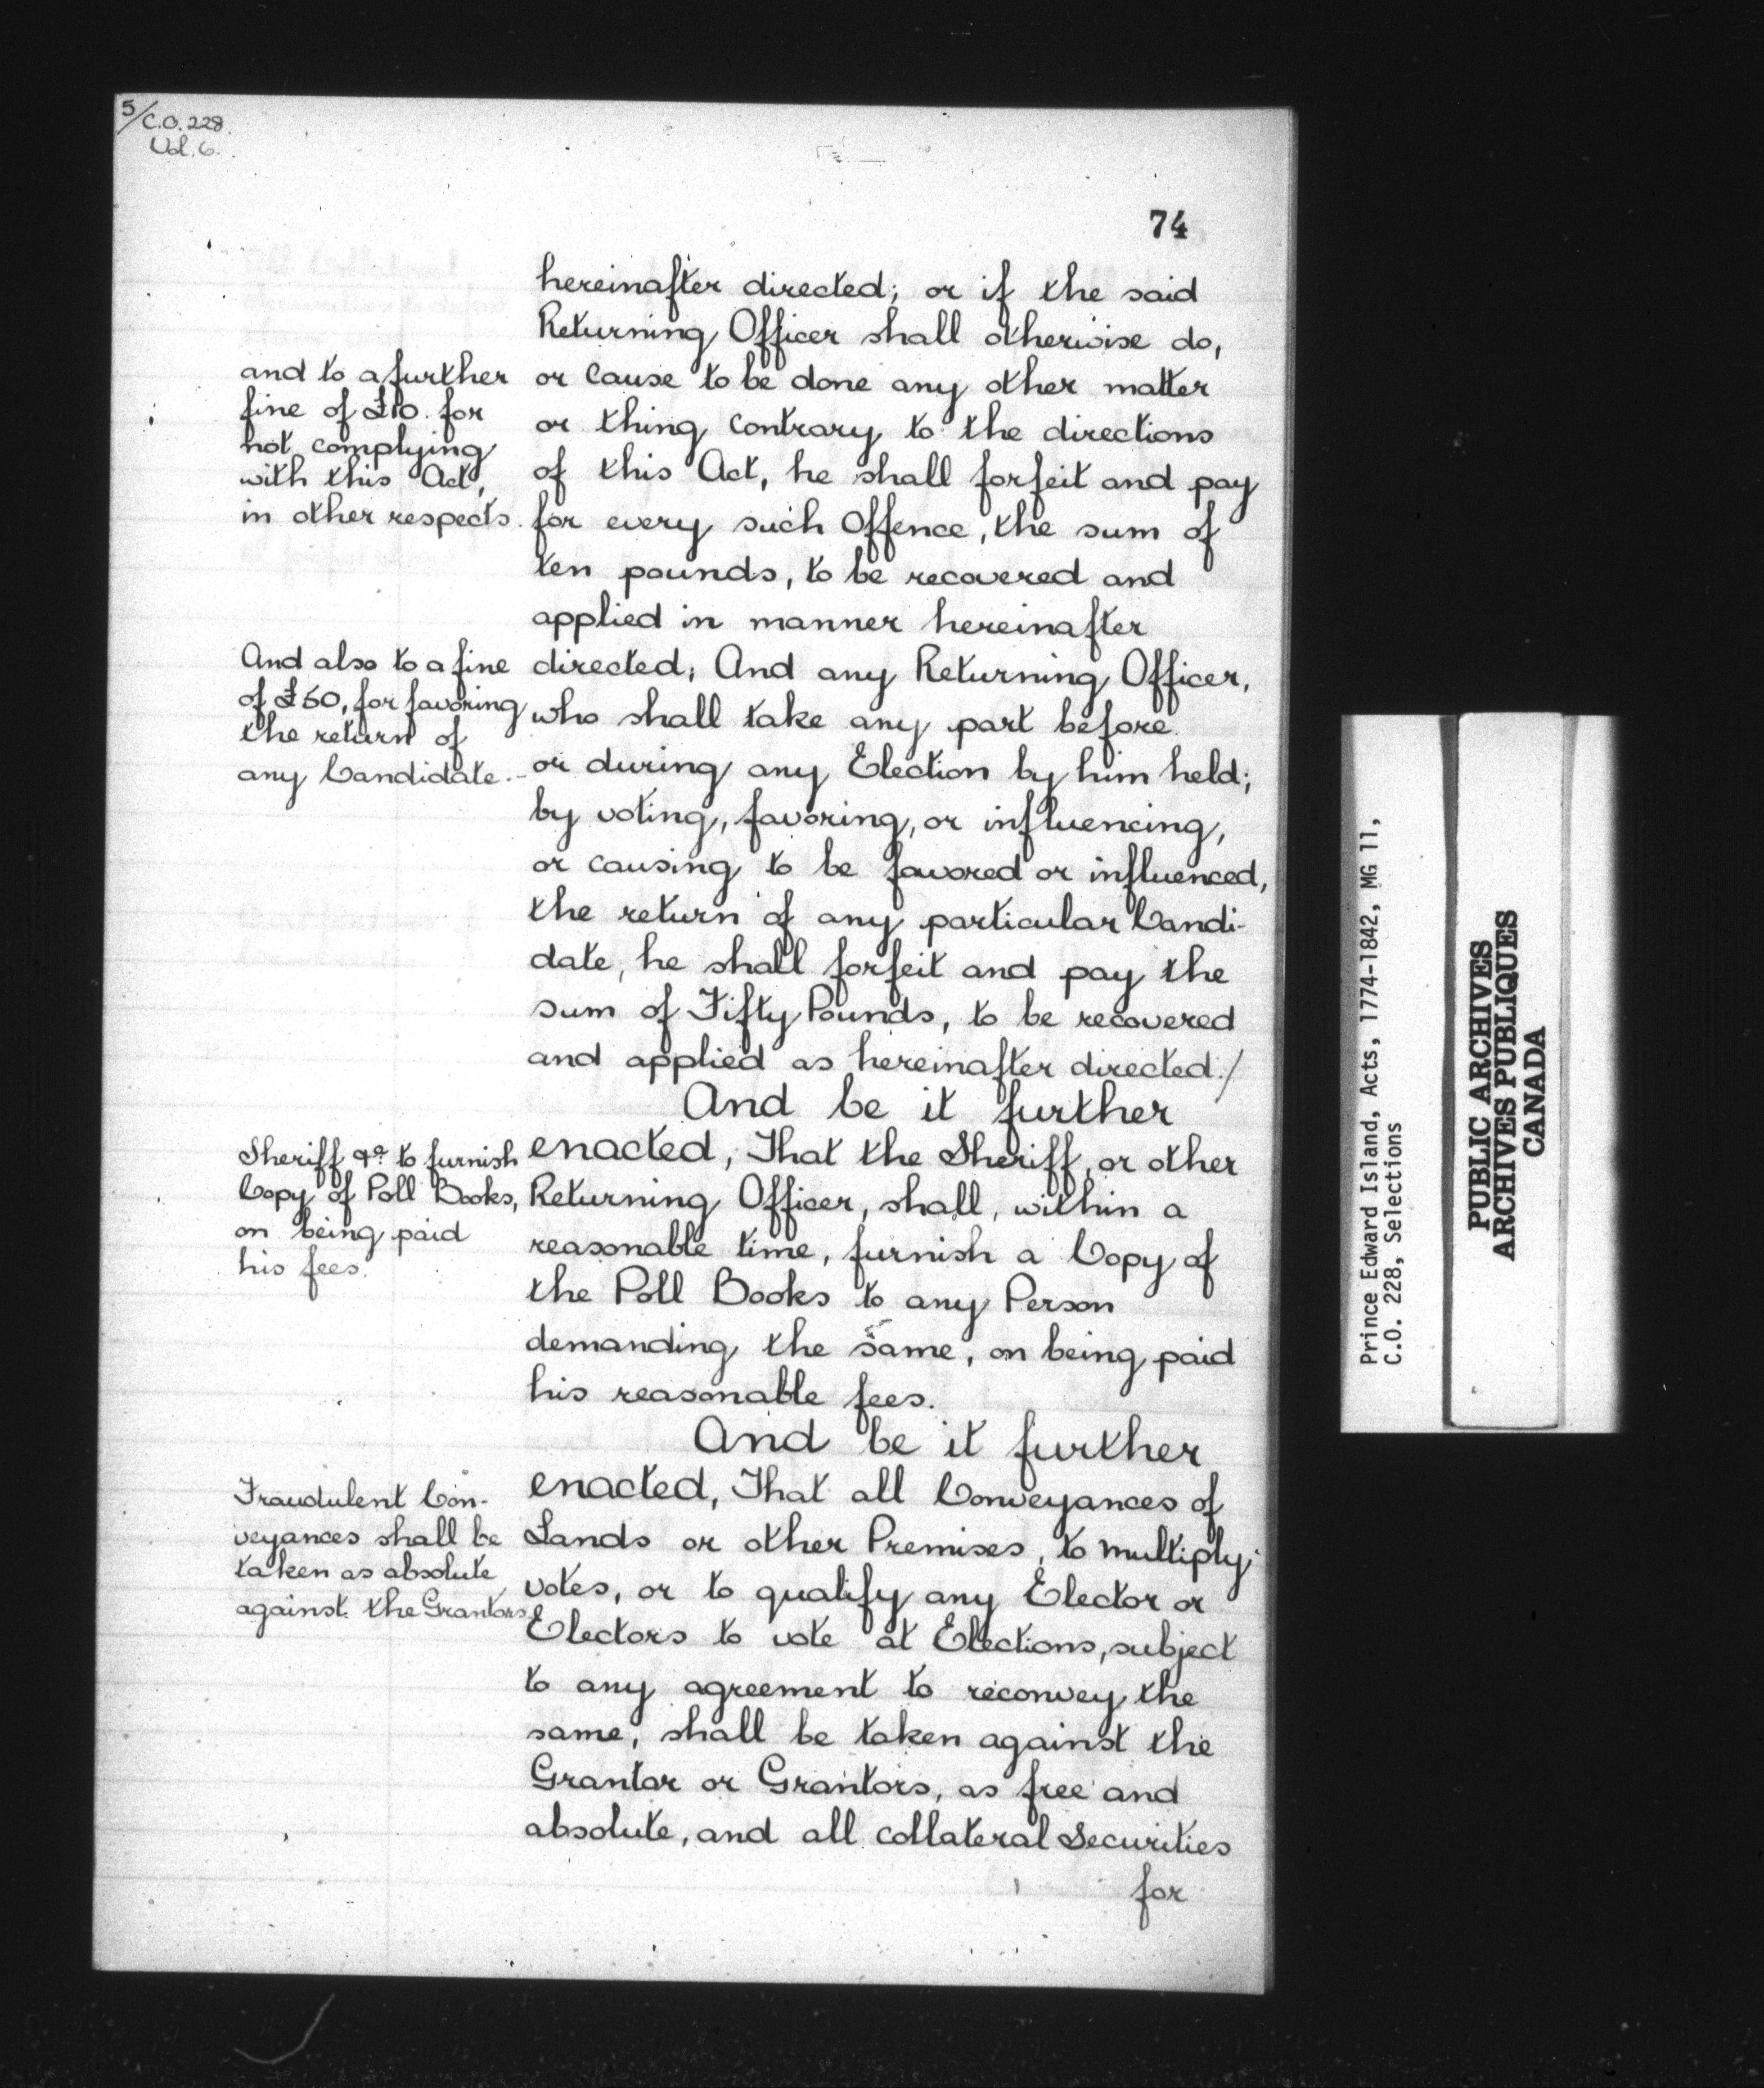 5/C.O. 228.
Vol. 6.
74
hereinafter directed; or if the said
Returning Officer shall otherwise do,
or Cause to be done any other matter
or thing Contrary to the directions
of this Act, he shall forfeit and pay
for every such Offence, the sum of
ten pounds, to be recovered and
applied in manner hereinafter
directed; And any Returning Officer,
who shall take any part before
or during any Election by him held;
by voting, favoring, or influencing,
or causing to be favored or influenced,
the return of any particular Candi-
date, he shall forfeit and pay the
sum of Fifty Pounds, to be recovered
and applied as hereinafter directed./
And be it further
enacted, That the Sheriff, or other
Returning Officer, shall, within a
reasonable time, furnish a Copy of
the Poll Books to any Person
demanding the same, on being paid
his reasonable fees.
And be it further
enacted, That all Conveyances of
Lands or other Premises, to multiply
votes, or to qualify any Elector or
Electors to vote at Elections, subject
to any agreement to reconvey the
same, shall be taken against the
Grantor or Grantors, as free and
absolute, and all collateral Securities
for
and to a further
fine of £10. for
not complying
with this Act,
in other respects.
And also to a fine
of £50, for favoring
the return of
any Candidate.-
Sheriff &c. to furnish
Copy of Poll Books,
on being paid
his fees.
Fraudulent Con-
veyances shall be
taken as absolute
against the Grantors
Prince Edward Island, Acts, 1774-1842, MG 11,
C.O. 228, Selections
PUBLIC ARCHIVES
ARCHIVES PUBLIQUES
CANADA